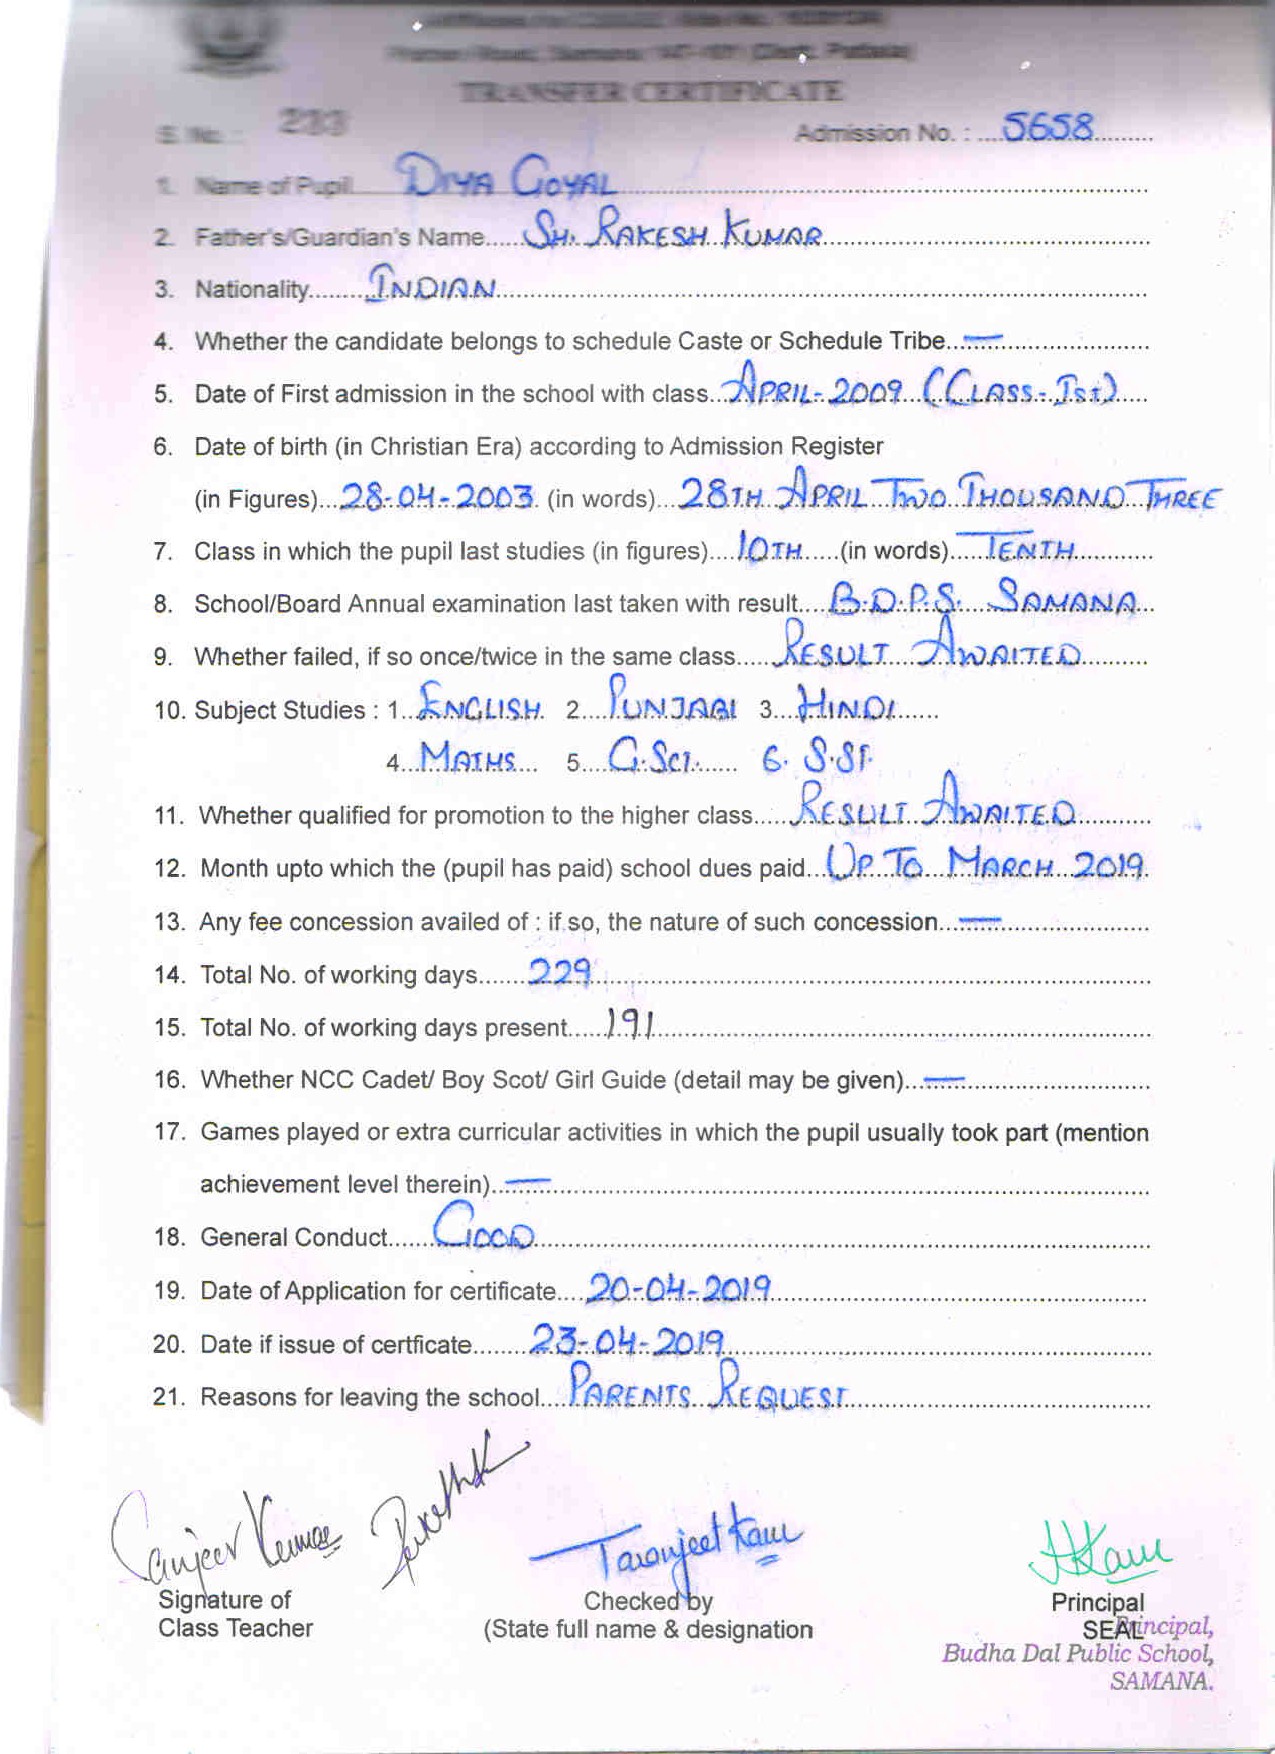 TRANSFER CERTIFICATE
S. No. : 233 Admission No. : 5658
1. Name of Pupil DIYA GOYAL
2. Father's/Guardian's Name SH. RAKESH KUMAR
3. Nationality INDIAN
4. Whether the candidate belongs to schedule Caste or Schedule Tribe —
5. Date of First admission in the school with class APRIL-2009 (CLASS-Ist)
6. Date of birth (in Christian Era) according to Admission Register
(in Figures) 28-04-2003 (in words) 28TH APRIL TWO THOUSAND THREE
7. Class in which the pupil last studies (in figures) 10TH (in words) TENTH
8. School/Board Annual examination last taken with result B.D.P.S. SAMANA
9. Whether failed, if so once/twice in the same class RESULT AWAITED
10. Subject Studies : 1 ENGLISH 2 PUNJABI 3 HINDI
4 MATHS 5 G.SCI. 6. S.ST.
11. Whether qualified for promotion to the higher class RESULT AWAITED
12. Month upto which the (pupil has paid) school dues paid UP TO MARCH 2019
13. Any fee concession availed of : if so, the nature of such concession —
14. Total No. of working days 229
15. Total No. of working days present 191
16. Whether NCC Cadet/ Boy Scot/ Girl Guide (detail may be given) —
17. Games played or extra curricular activities in which the pupil usually took part (mention
achievement level therein) —
18. General Conduct GOOD
19. Date of Application for certificate 20-04-2019
20. Date if issue of certficate 23-04-2019
21. Reasons for leaving the school PARENTS REQUEST
Sanjeev Kumar Taranjeet Kaur
Signature of Checked by Principal
Class Teacher (State full name & designation SEAL
Principal,
Budha Dal Public School,
SAMANA.